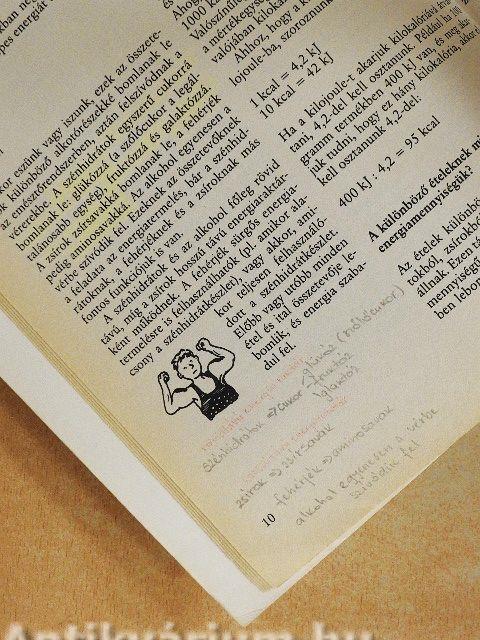 kban ne
pes energiát
kor eszünk vagy iszunk, ezek az összete-
ok különböző alkotórészekké bomlanak le
az emésztőrendszerben, aztán felszívódnak a
vérereкbe. A szénhidrátok egyszerű cukorrá
bomlanak le: glükózzá (a szőlőcukor a legál-
talánosabb egység), fruktózzá és galaktózzá.
A zsírok zsírsavakká bomlanak le, a fehérjék
pedig aminosavakká. Az alkohol egyenesen a
vérbe szívódik fel. Ezeknek az összetevőknek
a feladata az energiatermelés, bár a szénhid-
rátoknak, a fehérjéknek és a zsíroknak más
fontos funkciójuk is van.
A szénhidrátok és az alkohol főleg rövid
távú, míg a zsírok hosszú távú energiaraktár-
ként működnek. A fehérjék sürgős energia-
termelésre is felhasználhatók (pl. amikor ala-
csony a szénhidrátkészlet), vagy akkor, ami-
kor teljesen felhasználó-
dott a szénhidrátkészlet.
Előbb vagy utóbb minden
étel és ital összetevője le-
bomlik, és energia szaba-
dul fel.
szénhidrátok => cukor
glükóz (szőlőcukor)
fruktóz
galaktóz
zsírok => zsírsavak
fehérjék => aminosavak
alkohol egyenesen a vérbe
szívódik fel
10
Ahog
1000 ka
Valószínűle
a mértékegysé
valójában kilokal
Ahhoz, hogy a k
lojoule-ba, szoroznun
1 kcal = 4,2 kJ
10 kcal = 42 kJ
Ha a kilojoule-t akarjuk kilokalóriává átvál
tani, 4,2-del kell osztanunk. Például ha 100
gramm termékben 400 kJ van, és meg akar
juk tudni, hogy ez hány kilokalória, akkor
kell osztanunk 4,2-del:
400 kJ : 4,2 = 95 kcal
A különböző ételeknek mi
energiamennyiségük?
Az ételek különbö
tokból, zsírokbó
állnak. Ezen tá
mennyiség
ben lebon
Antikvárium.hu